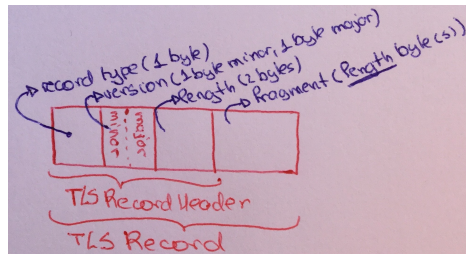 record type (1 byte)
version (1 byte minor, 1 byte major)
length (2 bytes)
fragment (length byte(s))
minor
major
TLS Record Header
TLS Record